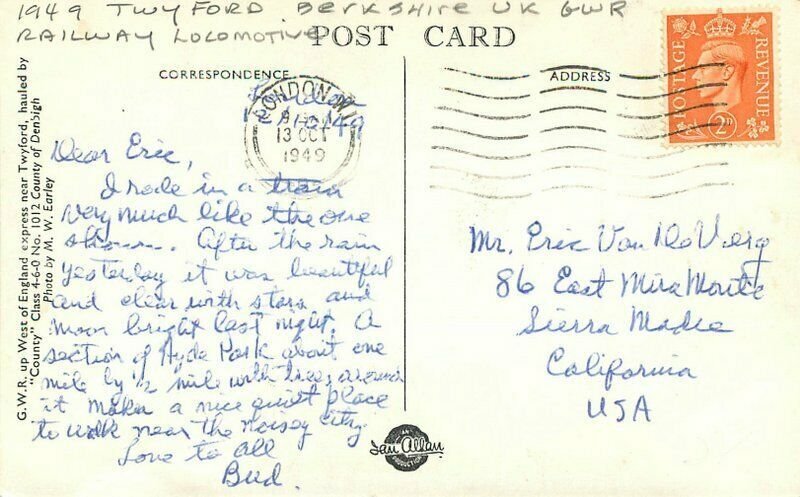 1949 TWYFORD. BERKSHIRE UK GWR
RAILWAY LOCOMOTIVE
POST CARD
CORRESPONDENCE
ADDRESS
G.W.R. up West of England express near Twyford, hauled by
"County" Class 4-6-0 No. 1012 County of Denbigh
Photo by M. W. Earley
LONDON W.1
13 OCT
1949
London
Dear Eric,
I rode in a train
very much like the one
After the rain
yesterday it was beautiful
and clear with stars and
moon bright last night. A
section of Hyde Park about one
mile by ½ mile with trees around
it makes a nice quiet place
to walk near the noisey city.
Love to all
Bud.
POSTAGE
REVENUE
2D
Mr. Eric Van De Verg
86 East Mira Monte
Sierra Madre
California
USA
AN
Ian Allan
PRODUCTION